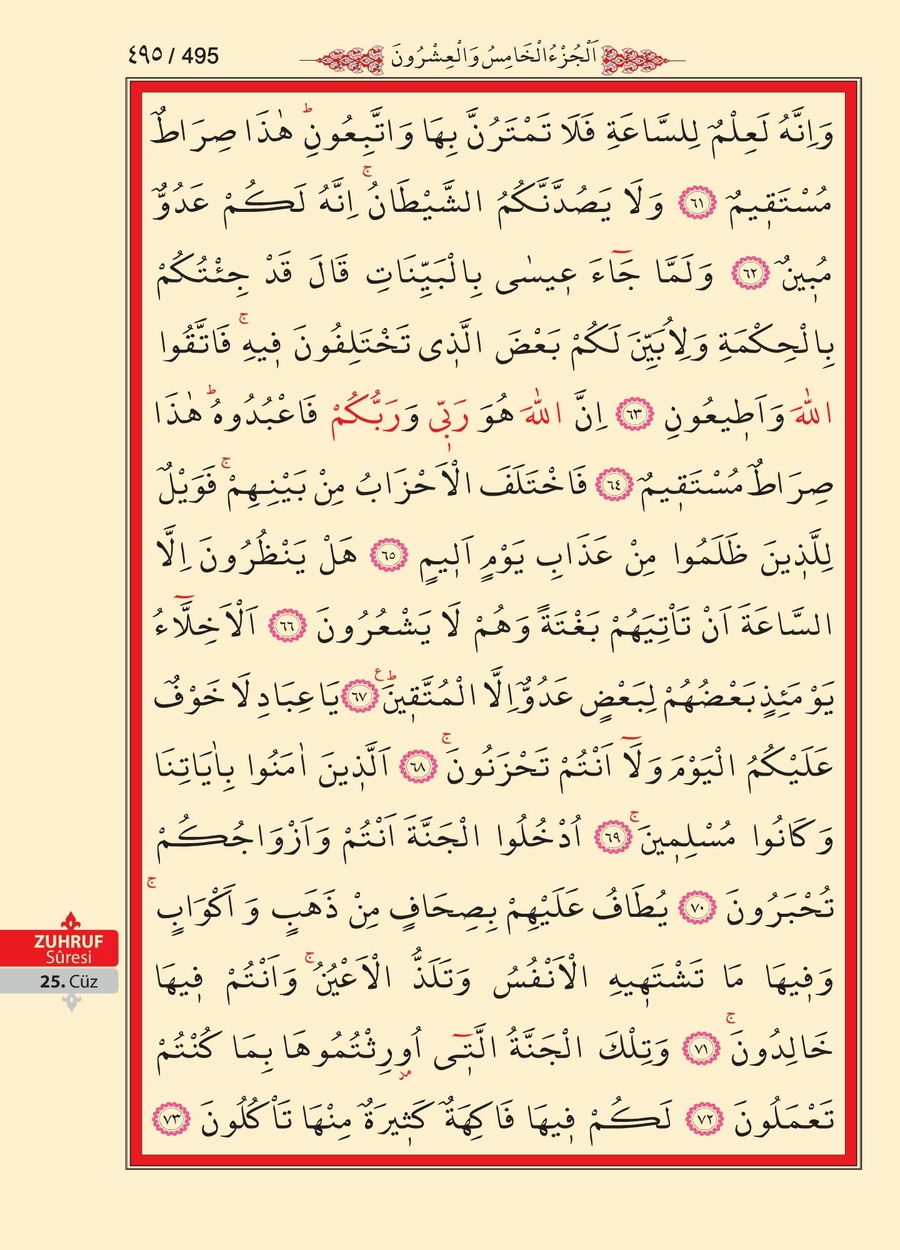 ٤٩٥ / 495 اَلْجُزْءُ الْخَامِسُ وَالْعِشْرُونَ
وَاِنَّهُ لَعِلْمٌ لِلسَّاعَةِ فَلَا تَمْتَرُنَّ بِهَا وَاتَّبِعُونِۜ هٰذَا صِرَاطٌ
مُسْتَق۪يمٌ ﴿٦١﴾ وَلَا يَصُدَّنَّكُمُ الشَّيْطَانُۚ اِنَّهُ لَكُمْ عَدُوٌّ
مُب۪ينٌ ﴿٦٢﴾ وَلَمَّا جَٓاءَ ع۪يسٰى بِالْبَيِّنَاتِ قَالَ قَدْ جِئْتُكُمْ
بِالْحِكْمَةِ وَلِاُبَيِّنَ لَكُمْ بَعْضَ الَّذ۪ى تَخْتَلِفُونَ ف۪يهِۚ فَاتَّقُوا
اللّٰهَ وَاَط۪يعُونِ ﴿٦٣﴾ اِنَّ اللّٰهَ هُوَ رَبّ۪ى وَرَبُّكُمْ فَاعْبُدُوهُۜ هٰذَا
صِرَاطٌ مُسْتَق۪يمٌ ﴿٦٤﴾ فَاخْتَلَفَ الْاَحْزَابُ مِنْ بَيْنِهِمْۚ فَوَيْلٌ
لِلَّذ۪ينَ ظَلَمُوا مِنْ عَذَابِ يَوْمٍ اَل۪يمٍ ﴿٦٥﴾ هَلْ يَنْظُرُونَ اِلَّا
السَّاعَةَ اَنْ تَأْتِيَهُمْ بَغْتَةً وَهُمْ لَا يَشْعُرُونَ ﴿٦٦﴾ اَلْاَخِلَّٓاءُ
يَوْمَئِذٍ بَعْضُهُمْ لِبَعْضٍ عَدُوٌّ اِلَّا الْمُتَّق۪ينَۜ ع ﴿٦٧﴾ يَا عِبَادِ لَا خَوْفٌ
عَلَيْكُمُ الْيَوْمَ وَلَٓا اَنْتُمْ تَحْزَنُونَۚ ﴿٦٨﴾ اَلَّذ۪ينَ اٰمَنُوا بِاٰيَاتِنَا
وَكَانُوا مُسْلِم۪ينَۚ ﴿٦٩﴾ اُدْخُلُوا الْجَنَّةَ اَنْتُمْ وَاَزْوَاجُكُمْ
تُحْبَرُونَ ﴿٧٠﴾ يُطَافُ عَلَيْهِمْ بِصِحَافٍ مِنْ ذَهَبٍ وَاَكْوَابٍۚ
وَف۪يهَا مَا تَشْتَه۪يهِ الْاَنْفُسُ وَتَلَذُّ الْاَعْيُنُۚ وَاَنْتُمْ ف۪يهَا
خَالِدُونَۚ ﴿٧١﴾ وَتِلْكَ الْجَنَّةُ الَّت۪ٓى اُو۫رِثْتُمُوهَا بِمَا كُنْتُمْ
تَعْمَلُونَ ﴿٧٢﴾ لَكُمْ ف۪يهَا فَاكِهَةٌ كَث۪يرَةٌ مِنْهَا تَأْكُلُونَ ﴿٧٣﴾
ZUHRUF
Sûresi
25. Cüz